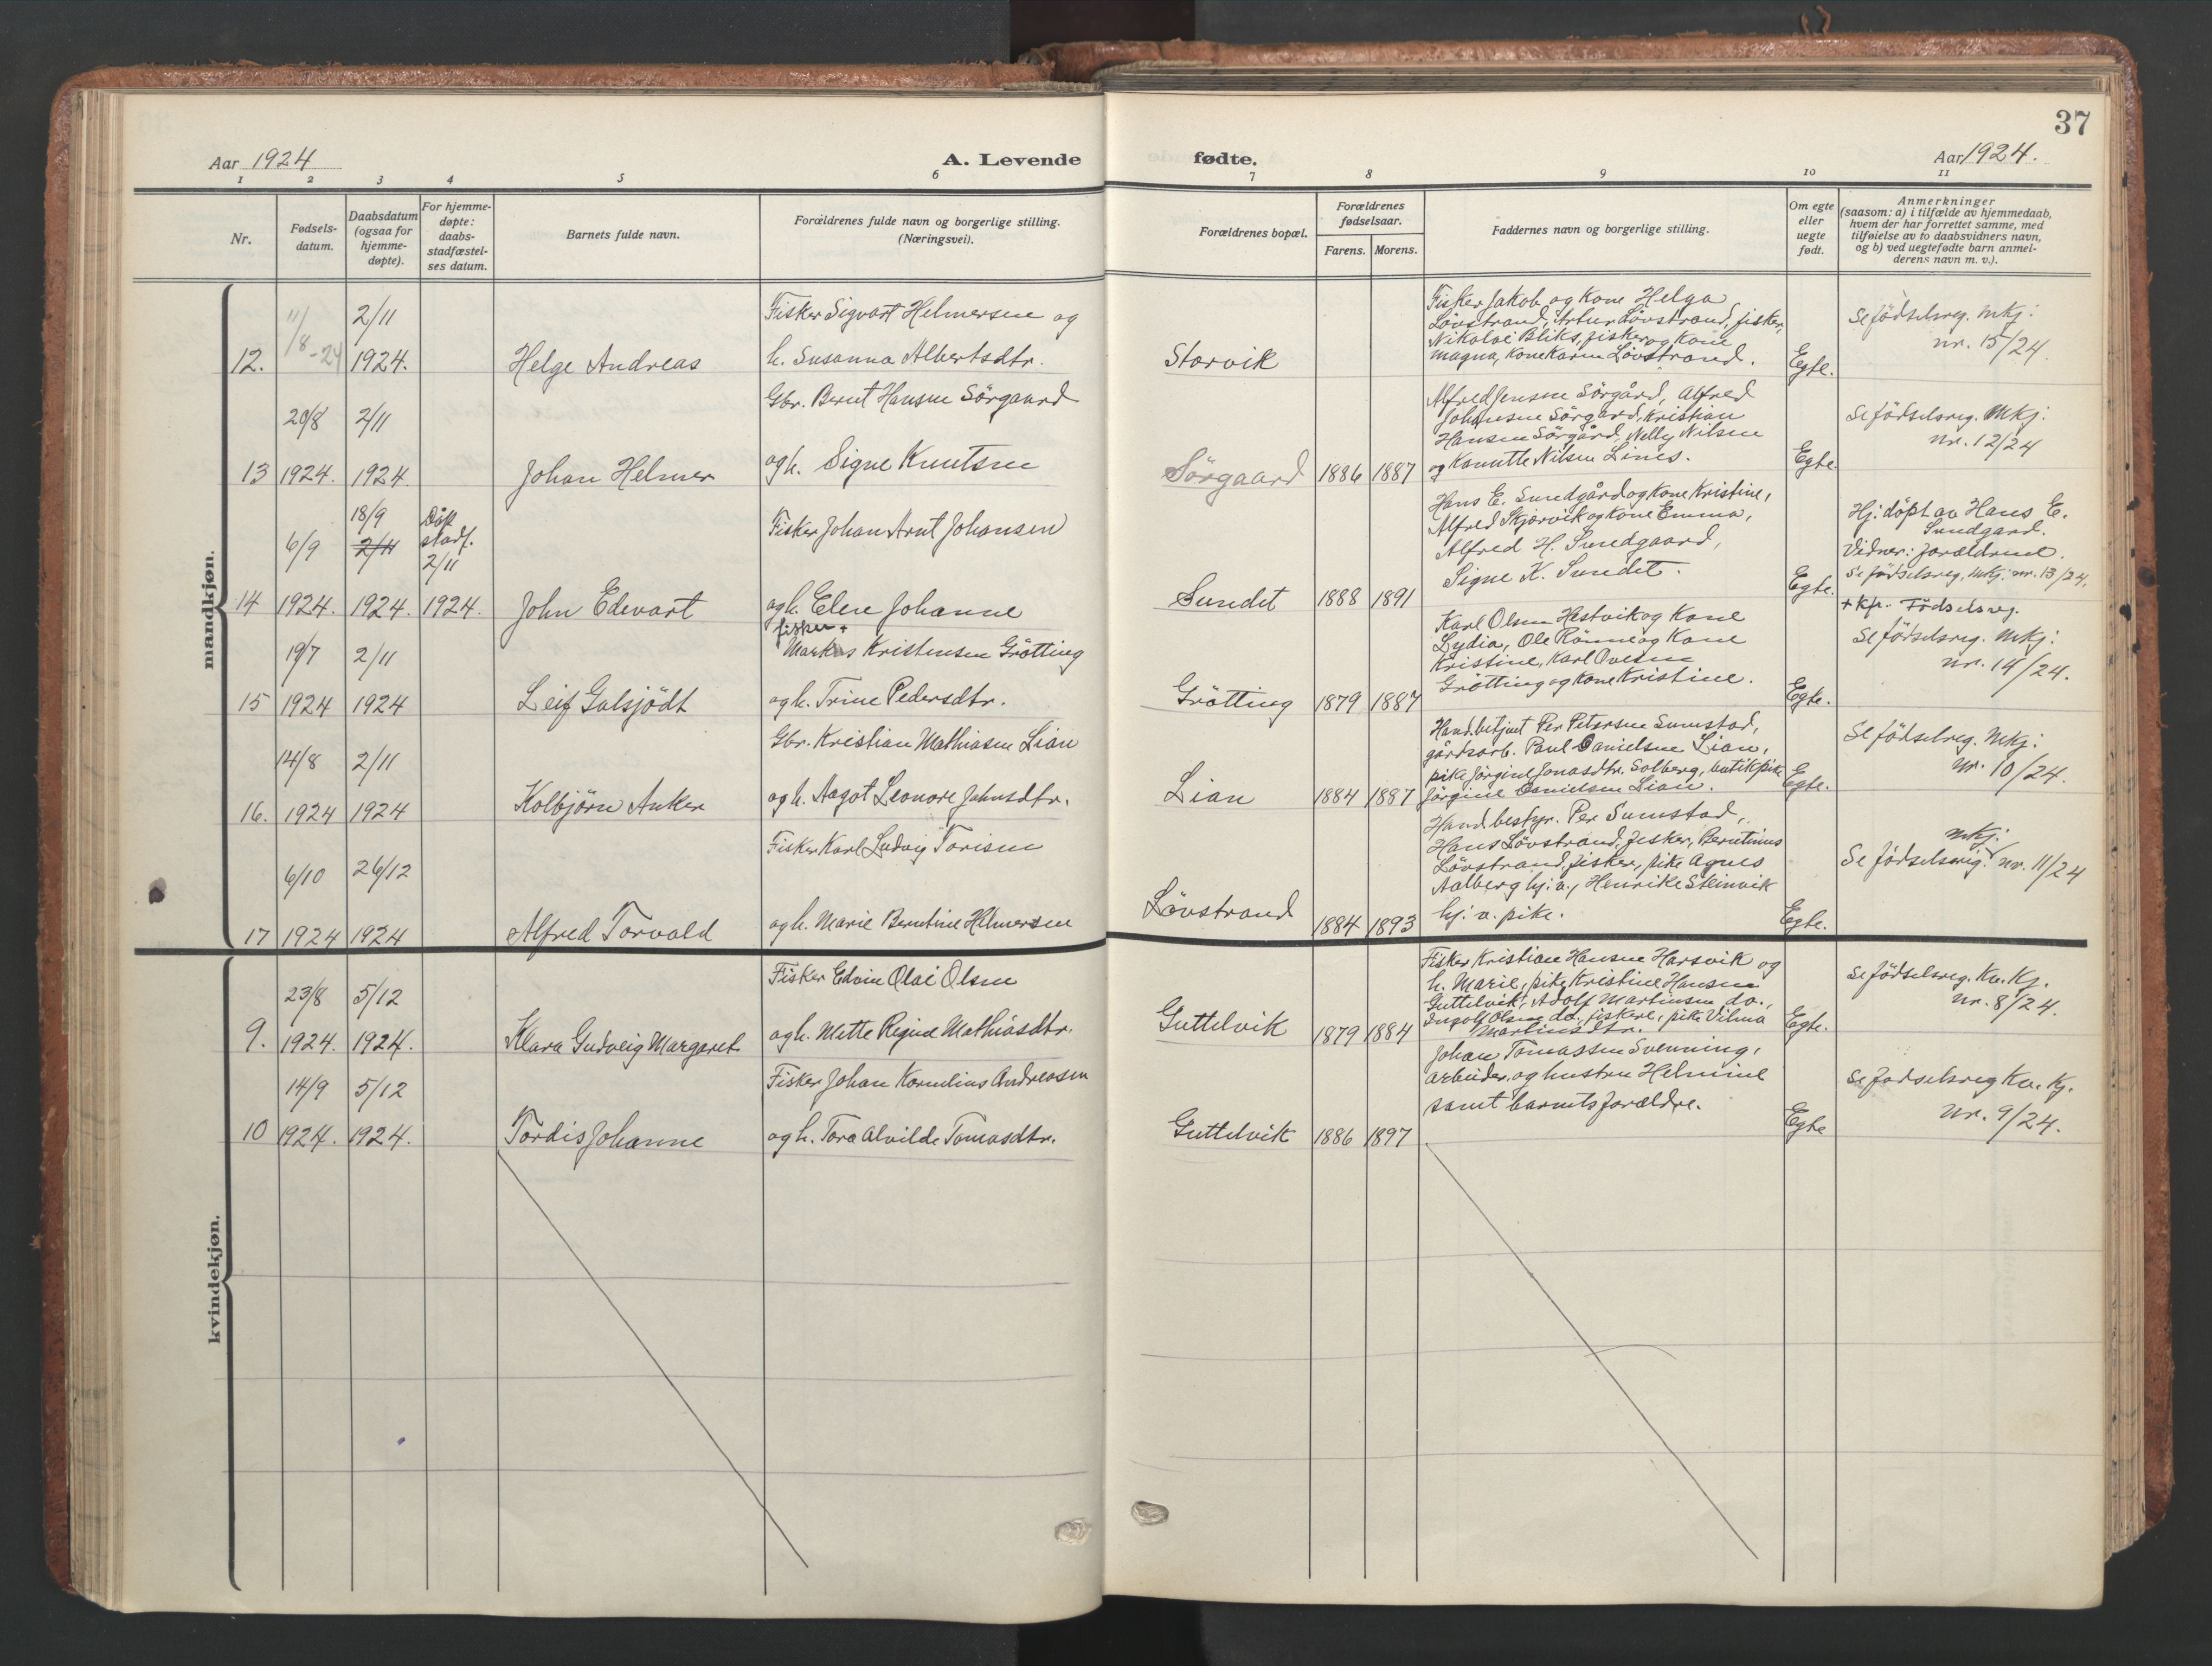 37
Aar 1924
A. Levende
fødte.
Aar 1924.
1 2 3 4 5 6 7 8 9 10 11
Nr.
Fødsels-
datum.
Daabsdatum
(ogsaa for
hjemme-
døpte).
For hjemme-
døpte:
daabs-
stadfæstel-
ses datum.
Barnets fulde navn.
Forældrenes fulde navn og borgerlige stilling.
(Næringsvei).
Forældrenes bopæl.
Forældrenes
fødselsaar.
Farens. Morens.
Faddernes navn og borgerlige stilling.
Om egte
eller
uegte
født.
Anmerkninger
(saasom: a) i tilfælde av hjemmedaab,
hvem der har forrettet samme, med
tilføielse av to daabsvidners navn,
og b) ved uegtefødte barn anmel-
derens navn m. v.).
mandkjøn.
12.
11/8-24
2/11
1924.
Helge Andreas
Fisker Sigvart Helmersen og
h. Susanna Albertsdtr.
Storvik
Fisker Jakob og Kone Helga
Lövstrand, Artur Lövstrand, fisker,
Nikolai Bliks, fisker og Kone
Magna, Kone Karen Lövstrand.
Egte.
Se födselsreg. Mkj:
nr. 15/24.
13
20/8
1924.
2/11
1924.
Johan Helmer
Gbr. Bernt Hansen Sörgaard
og h. Signe Knutsen
Sörgaard
1886 1887
Alfred Jensen Sörgård, Alfred
Johansen Sörgård, Kristian
Hansen Sörgård, Nelly Nilsen
og Kanutte Nilsen Lines.
Egte.
Se födselsreg. Mkj:
nr. 12/24
14
6/9
1924.
18/9
2/11
1924.
Döp
stadf.
2/11
1924.
John Edevart
Fisker Johan Arnt Johansen
og h. Elen Johanne
Sundet
1888 1891
Hans E. Sundgård og Kone Kristine,
Alfred Skjærvik og Kone Emma,
Alfred H. Sundgaard,
Signe K. Sundet.
Egte.
Hj: döpt av Hans E.
Sundgard.
Vidner: forældrene.
Se födselsreg. Mkj. nr. 13/24.
15
19/7
1924
2/11
1924
Leif Galsjödt
fisker +
Markus Kristensen Grötting
og h. Trine Pedersdtr.
Grötting
1879 1887
Karl Olsen Hestvik og Kone
Lydia, Ole Rönne og Kone
Kristine, Karl Ovesen
Grötting og Kone Kristine.
Egte.
+ Kfr. Födselsreg.
Se födselsreg. Mkj:
nr. 14/24.
16.
14/8
1924
2/11
1924
Kolbjörn Anker
Gbr. Kristian Mathiasen Lian
og h. Aagot Leonore Johnsdtr.
Lian
1884 1887
Hand.betjent Per Petersen Sumstad,
gårdsarb. Paul Danielsen Lian,
pike Jörgine Jonasdtr. Solberg, butikpike
Jörgine Danielsen Lian.
Egte.
Se födselreg. Mkj:
nr. 10/24.
17
6/10
1924
26/12
1924
Alfred Torvald
Fisker Karl Ludvig Torisen
og h. Marie Berntine Helmersen
Lövstrand
1884 1893
Handbestyr. Per Sumstad,
Hans Lövstrand, fisker, Berntinus
Lövstrand, fisker, pike Agnes
Aalberg hj: v., Henrike Steinvik
hj: v. pike.
Egte.
Mkj:
Se födselsreg. nr. 11/24
kvindekjøn.
9.
23/8
1924.
5/12
1924.
Klara Gudveig Margaret
Fisker Edvin Olai Olsen
og h. Mette Regine Mathiasdtr.
Guttelvik
1879 1884
Fisker Kristian Hansen Harsvik og
h. Marie, pike Kristine Hansen
Guttelvik, Adolf Martinsen do.,
Ingolf Olsen do. fiskere, pike Vilma
Martinsdtr.
Egte.
Se födselsreg. Kv. Kj.
nr. 8/24.
10
14/9
1924.
5/12
1924.
Tordis Johanne
Fisker Johan Kornelius Andreasen
og h. Tora Alvilde Tomasdtr.
Guttelvik
1886 1897
Johan Tomassen Svenning,
arbeider, og hustru Helmine
samt barnets forældre.
Egte
Se fodselsreg Kv. Kj.
nr. 9/24.